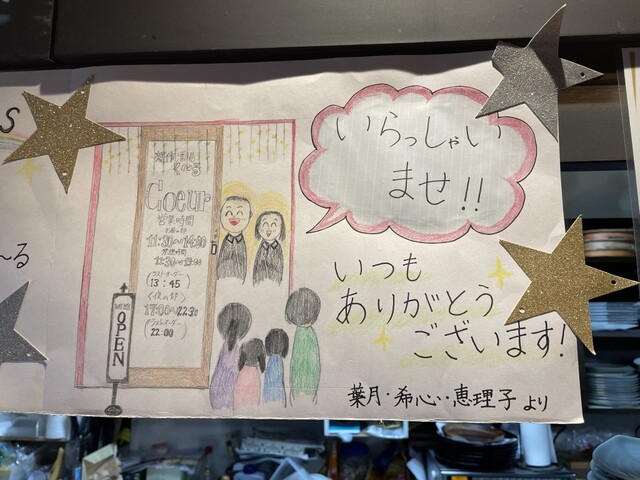 S
〜る
Coeur
営業時間
11:30〜14:00
(ラストオーダー
13:45)
(夜の部)
17:00〜22:30
(ラストオーダー
22:00)
OPEN
いらっしゃい
ませ!!
いつも
ありがとう
ございます!
葉月・希心・恵理子より